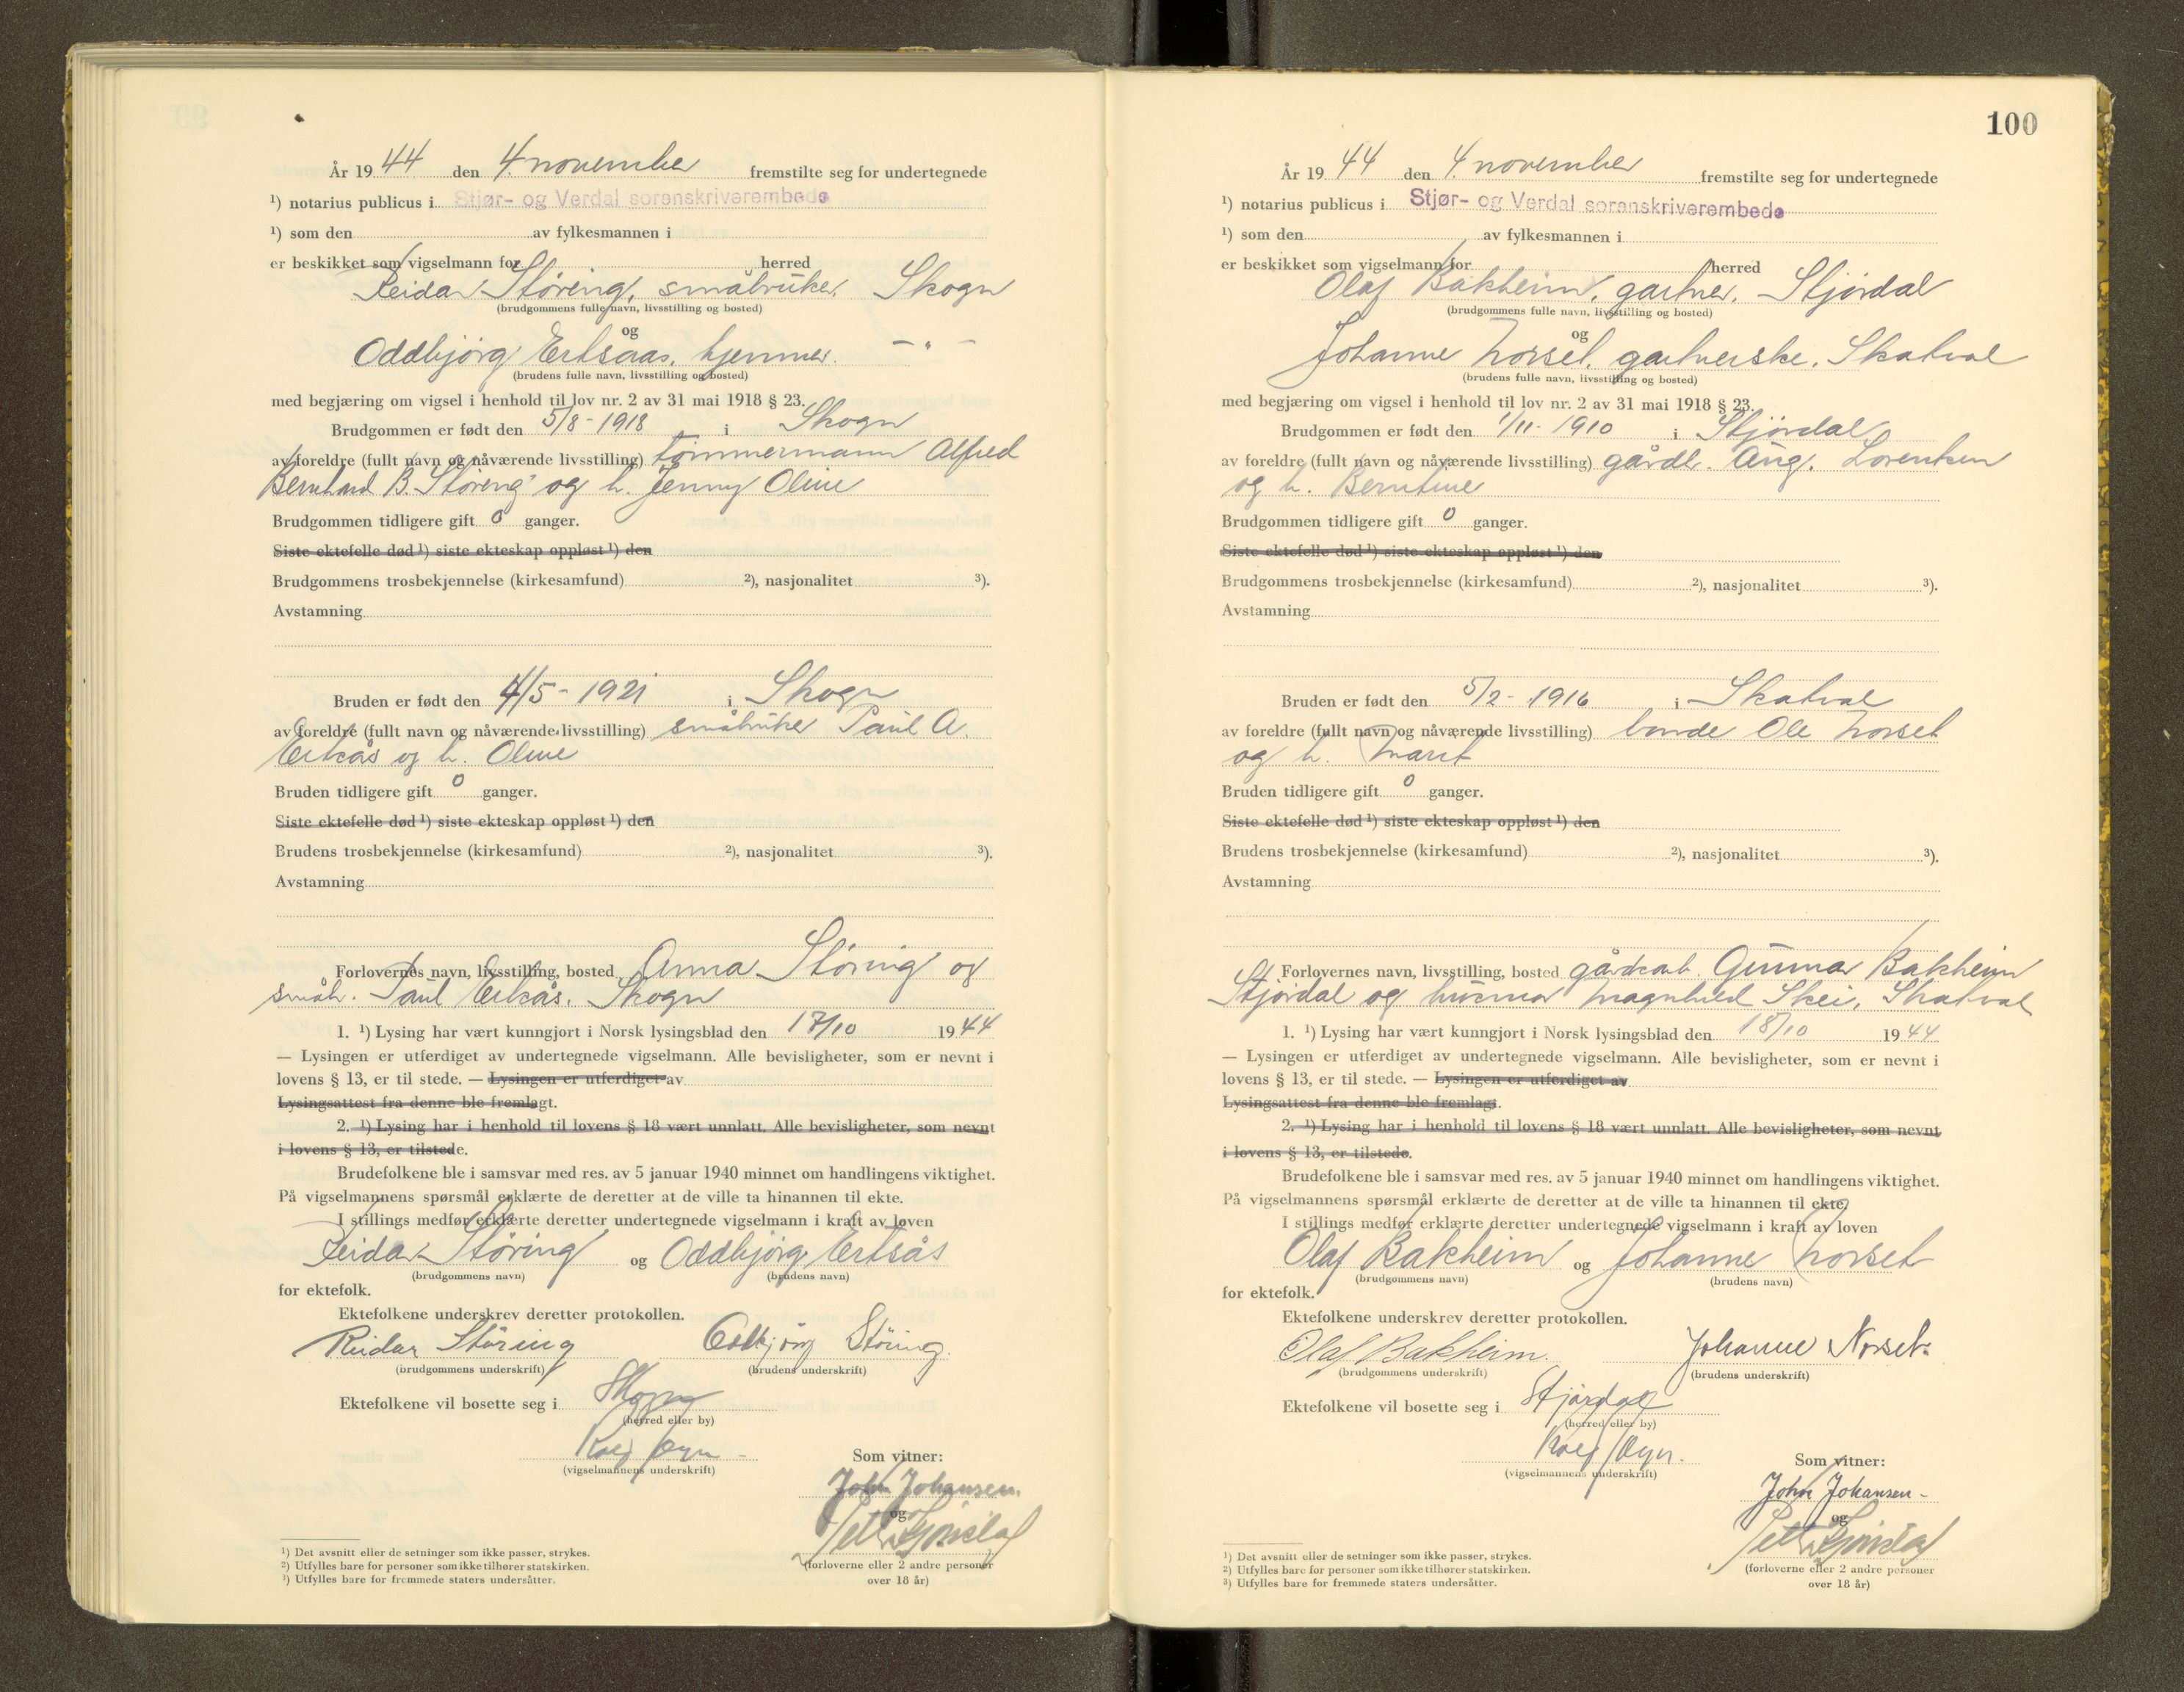 År 19 44 den 4. november fremstilte seg for undertegnede
¹) notarius publicus i Stjør- og Verdal sorenskriverembede
¹) som den av fylkesmannen i
er beskikket som vigselmann for herred
Reidar Störing, småbruker, Skogn
(brudgommens fulle navn, livsstilling og bosted)
og
Oddbjörg Ertsaas, hjemmev. - " -
(brudens fulle navn, livsstilling og bosted)
med begjæring om vigsel i henhold til lov nr. 2 av 31 mai 1918 § 23.
Brudgommen er født den 5/8 - 1918 i Skogn
av foreldre (fullt navn og nåværende livsstilling) tömmermann Alfred
Bernhard B. Störing og h. Jenny Oline
Brudgommen tidligere gift 0 ganger.
Siste ektefelle død ¹) siste ekteskap oppløst ¹) den
Brudgommens trosbekjennelse (kirkesamfund) ²), nasjonalitet ³).
Avstamning
Bruden er født den 4/5 - 1921 i Skogn
av foreldre (fullt navn og nåværende livsstilling) småbruker Paul A.
Ertsås og h. Oline
Bruden tidligere gift 0 ganger.
Siste ektefelle død ¹) siste ekteskap oppløst ¹) den
Brudens trosbekjennelse (kirkesamfund) ²), nasjonalitet ³).
Avstamning
Forlovernes navn, livsstilling, bosted Anna Störing og
småbr. Paul Ertsås, Skogn
1. ¹) Lysing har vært kunngjort i Norsk lysingsblad den 17/10 19 44
— Lysingen er utferdiget av undertegnede vigselmann. Alle bevisligheter, som er nevnt i
lovens § 13, er til stede. — Lysingen er utferdiget av
Lysingsattest fra denne ble fremlagt.
2. ¹) Lysing har i henhold til lovens § 18 vært unnlatt. Alle bevisligheter, som nevnt
i lovens § 13, er tilstede.
Brudefolkene ble i samsvar med res. av 5 januar 1940 minnet om handlingens viktighet.
På vigselmannens spørsmål erklærte de deretter at de ville ta hinannen til ekte.
I stillings medfør erklærte deretter undertegnede vigselmann i kraft av loven
Reidar Störing og Oddbjörg Ertsås
(brudgommens navn) (brudens navn)
for ektefolk.
Ektefolkene underskrev deretter protokollen.
Reidar Störing Oddbjörg Störing.
(brudgommens underskrift) (brudens underskrift)
Ektefolkene vil bosette seg i Skogn
(herred eller by)
(vigselmannens underskrift)
Som vitner:
John Johansen.
og
(forloverne eller 2 andre personer
over 18 år)
¹) Det avsnitt eller de setninger som ikke passer, strykes.
²) Utfylles bare for personer som ikke tilhører statskirken.
³) Utfylles bare for fremmede staters undersåtter.
100
År 19 44 den 4. november fremstilte seg for undertegnede
¹) notarius publicus i Stjør- og Verdal sorenskriverembede
¹) som den av fylkesmannen i
er beskikket som vigselmann for herred
Olaf Bakheim, gartner, Stjördal
(brudgommens fulle navn, livsstilling og bosted)
og
Johanne Norset, gartnerske, Skatval
(brudens fulle navn, livsstilling og bosted)
med begjæring om vigsel i henhold til lov nr. 2 av 31 mai 1918 § 23.
Brudgommen er født den 1/11 - 1910 i Stjördal
av foreldre (fullt navn og nåværende livsstilling) gårdbr. Aug. Lorentsen
og h. Berntine
Brudgommen tidligere gift 0 ganger.
Siste ektefelle død ¹) siste ekteskap oppløst ¹) den
Brudgommens trosbekjennelse (kirkesamfund) ²), nasjonalitet ³).
Avstamning
Bruden er født den 5/2 - 1916 i Skatval
av foreldre (fullt navn og nåværende livsstilling) bonde Ole Norset
og h. Marit
Bruden tidligere gift 0 ganger.
Siste ektefelle død ¹) siste ekteskap oppløst ¹) den
Brudens trosbekjennelse (kirkesamfund) ²), nasjonalitet ³).
Avstamning
Forlovernes navn, livsstilling, bosted gårdsarb. Gunnar Bakheim
Stjördal og husmor Magnhild Skei, Skatval
1. ¹) Lysing har vært kunngjort i Norsk lysingsblad den 18/10 19 44
— Lysingen er utferdiget av undertegnede vigselmann. Alle bevisligheter, som er nevnt i
lovens § 13, er til stede. — Lysingen er utferdiget av
Lysingsattest fra denne ble fremlagt.
2. ¹) Lysing har i henhold til lovens § 18 vært unnlatt. Alle bevisligheter, som nevnt
i lovens § 13, er tilstede.
Brudefolkene ble i samsvar med res. av 5 januar 1940 minnet om handlingens viktighet.
På vigselmannens spørsmål erklærte de deretter at de ville ta hinannen til ekte.
I stillings medfør erklærte deretter undertegnede vigselmann i kraft av loven
Olaf Bakheim og Johanne Norset
(brudgommens navn) (brudens navn)
for ektefolk.
Ektefolkene underskrev deretter protokollen.
Olaf Bakheim. Johanne Norset.
(brudgommens underskrift) (brudens underskrift)
Ektefolkene vil bosette seg i Stjørdal
(herred eller by)
(vigselmannens underskrift)
Som vitner:
John Johansen
og
(forloverne eller 2 andre personer
over 18 år)
¹) Det avsnitt eller de setninger som ikke passer, strykes.
²) Utfylles bare for personer som ikke tilhører statskirken.
³) Utfylles bare for fremmede staters undersåtter.